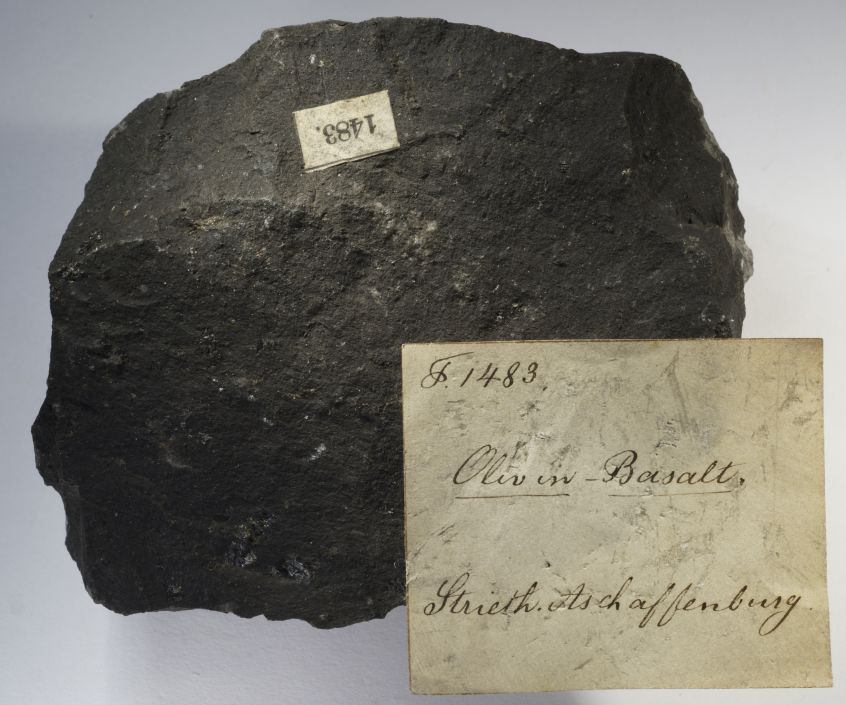 1483.
F. 1483.
Olivin-Basalt.
Strieth. Aschaffenburg.